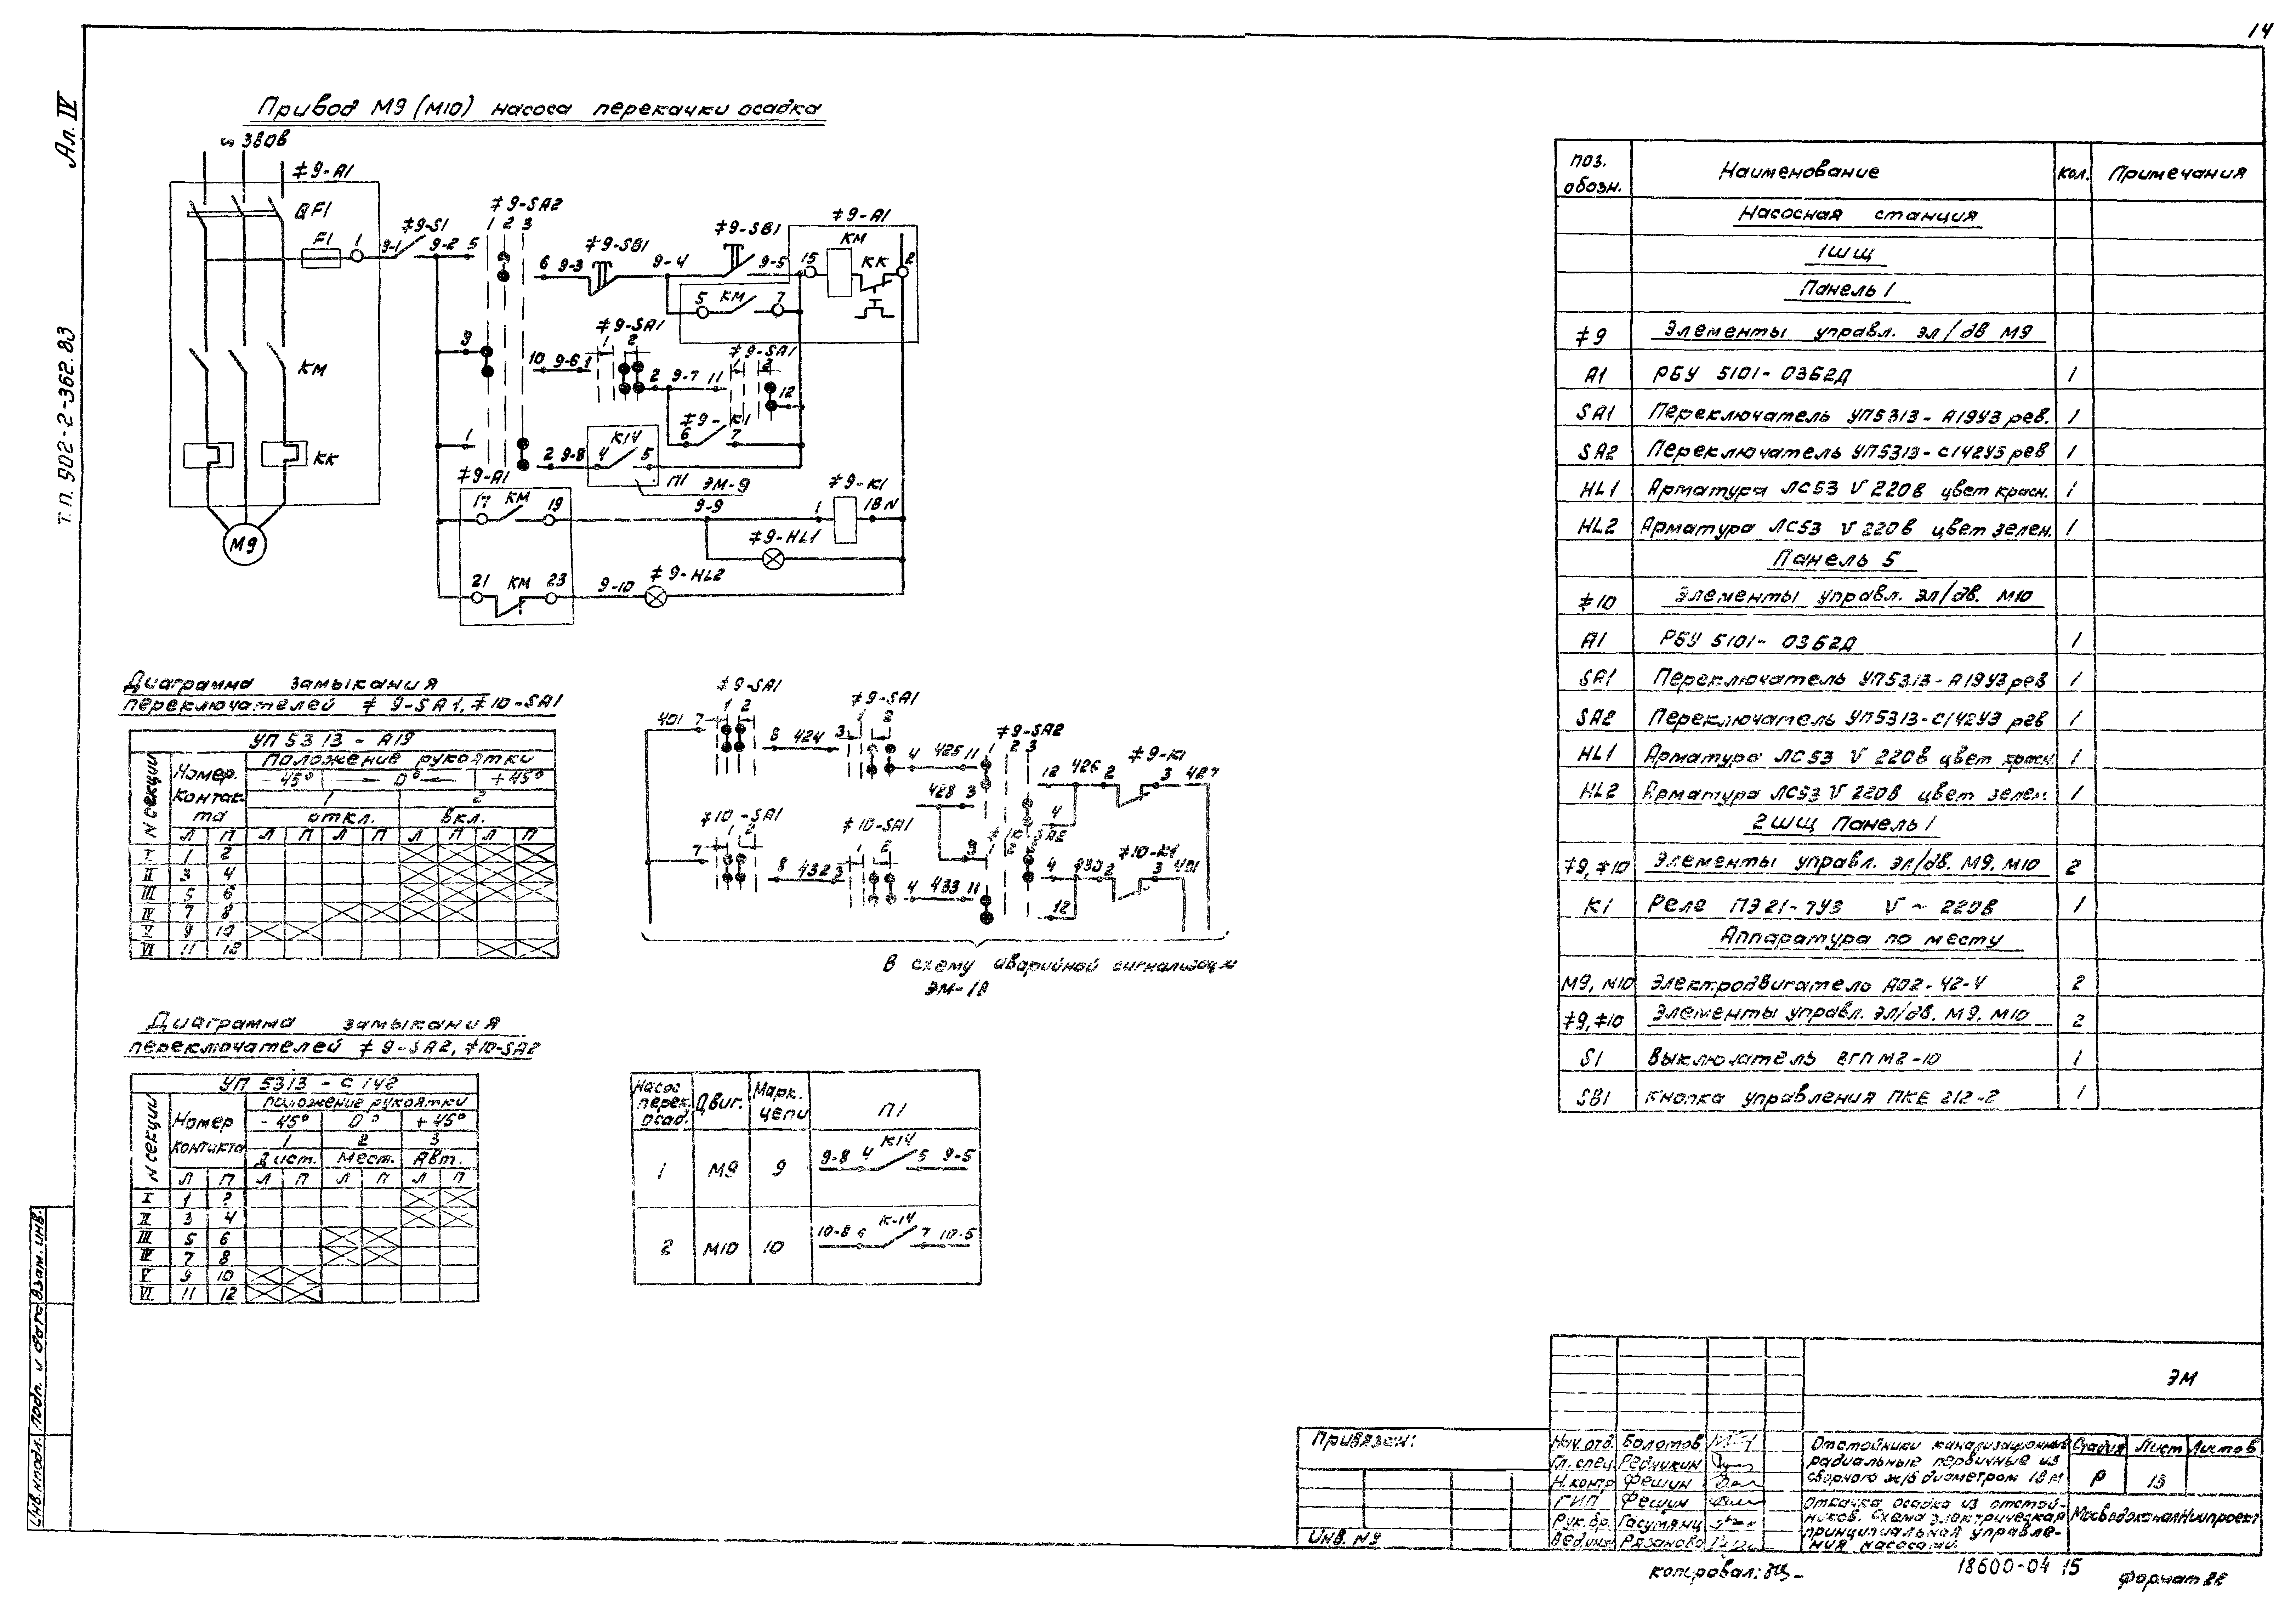 14
Ал. IV
т.п. 902-2-362.83
Привод М9 (М10) насоса перекачки осадка
∾ 380В
≠9-А1
QF1
F1
1
9-1
≠9-S1
9-2
5
≠9-SA2
1 2 3
6 9-3
≠9-SB1
9-4
≠9-SB1
9-5
15
≠9-А1
КМ
КК
2
5 КМ 7
≠9-SA1
1 2
≠9-SA1
1 2
9
10 9-6 1
2 9-7 11
12
≠9-К1
6 7
1
К14
2 9-8 4 5
П1 ЭМ-9
КМ
КК
М9
≠9-А1
17 КМ 19
9-9
≠9-К1
1 18 N
≠9-HL1
21 КМ 23
9-10
≠9-HL2
Диаграмма замыкания
переключателей ≠ 9-SA1, ≠10-SA1
УП 5313 - А19
N секции
Номер контакта
Положение рукоятки
-45° 0° +45°
1 2
откл. вкл.
Л П Л П Л П Л П Л П
I 1 2
II 3 4
III 5 6
IV 7 8
V 9 10
VI 11 12
≠9-SA1
1 2
401 7
8 424 3
≠9-SA1
1 2
4 425 11
≠9-SA2
1 2 3
12 426 2
≠9-К1
3 427
428 3
4
≠10-SA1
1 2
7
8 432 3
≠10-SA1
1 2
4 433 11
9
≠10-SA2
4 430 2
≠10-К1
3 431
12
В схему аварийной сигнализации
ЭМ-18
Диаграмма замыкания
переключателей ≠ 9-SA2, ≠10-SA2
УП 5313 - С142
N секции
Номер контакта
Положение рукоятки
-45° 0° +45°
1 2 3
Дист. Мест. Авт.
Л П Л П Л П Л П
I 1 2
II 3 4
III 5 6
IV 7 8
V 9 10
VI 11 12
Насос перек. осад. Двиг. Марк. цепи П1
1 М9 9 9-8 4 К14 5 9-5
2 М10 10 10-8 6 К-14 7 10-5
поз. обозн. Наименование кол. Примечания
Насосная станция
1ШЩ
Панель 1
≠9 Элементы управл. эл/дв М9
А1 РБУ 5101-03Б2Д 1
SA1 Переключатель УП5313-А19У3 рев. 1
SA2 Переключатель УП5313-С142У3 рев 1
HL1 Арматура ЛС53 V 220В цвет красн. 1
HL2 Арматура ЛС53 V 220В цвет зелен. 1
Панель 5
≠10 Элементы управл. эл/дв. М10
А1 РБУ 5101-03Б2Д 1
SA1 Переключатель УП5313-А19У3 рев 1
SA2 Переключатель УП5313-С142У3 рев 1
HL1 Арматура ЛС53 V 220В цвет красн. 1
HL2 Арматура ЛС53 V 220В цвет зелен. 1
2ШЩ Панель 1
≠9, ≠10 Элементы управл. эл/дв. М9, М10 2
К1 Реле ПЭ21-7У3 V ~ 220В 1
Аппаратура по месту
М9, М10 Электродвигатель АО2-42-4 2
≠9, ≠10 Элементы управл. эл/дв. М9, М10 2
S1 Выключатель ВГПМ2-10 1
SB1 Кнопка управления ПКЕ 212-2 1
ЭМ
Привязан:
Инв. №
Нач. отд. Болотов
Гл. спец. Редчикин
Н.контр Фешин
ГИП Фешин
Рук. бр. Гасумянц
Вед.инж Рязанова
Отстойники канализационные
радиальные первичные из
сборного ж/б диаметром 18 м
Стадия Лист Листов
Р 13
Откачка осадка из отстой-
ников. Схема электрическая
принципиальная управле-
ния насосами.
МосводоканалНИИпроект
копировал:
18600-04 15
Формат 22
Инв.Nподл. Подп. и дата Взам. инв.